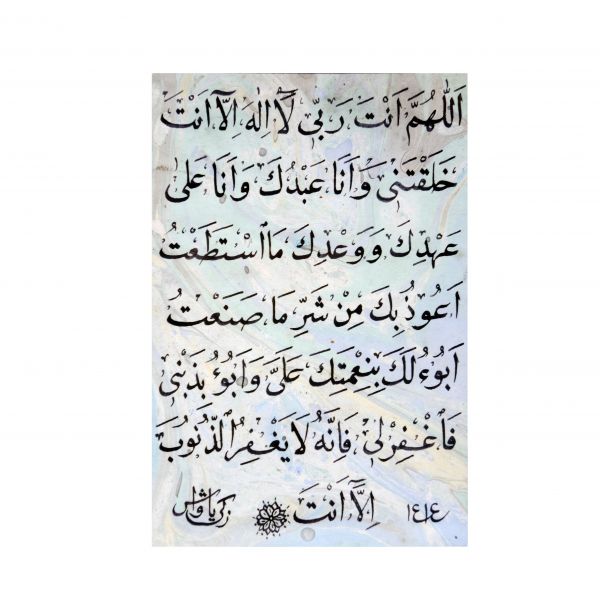 اَللّٰهُمَّ اَنْتَ رَبّٖي لَٓا اِلٰهَ اِلَّا اَنْتَ
خَلَقْتَنٖي وَاَنَا عَبْدُكَ وَاَنَا عَلٰى
عَهْدِكَ وَوَعْدِكَ مَا اسْتَطَعْتُ
اَعُوذُ بِكَ مِنْ شَرِّ مَا صَنَعْتُ
اَبُوءُ لَكَ بِنِعْمَتِكَ عَلَيَّ وَاَبُوءُ بِذَنْبٖي
فَاغْفِرْلٖي فَاِنَّهُ لَا يَغْفِرُ الذُّنُوبَ
١٤١٤ اِلَّا اَنْتَ